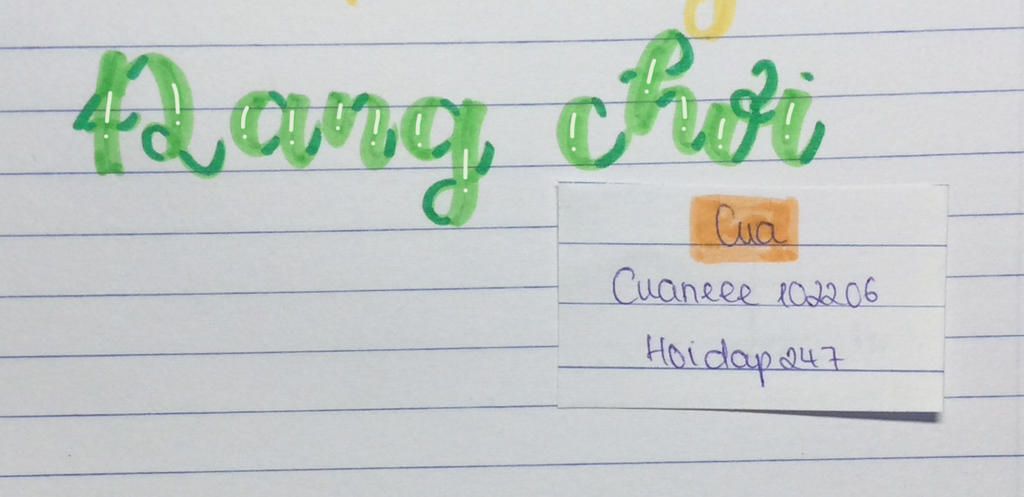 Đang chơi
Cua
Cuaneee 102206
Hoidap247